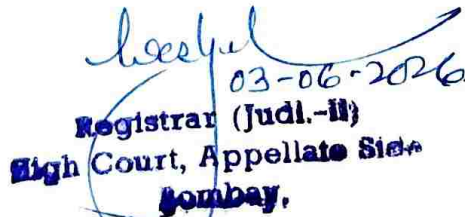 03-06-2026
Registrar (Judl.-II)
High Court, Appellate Side
Bombay.